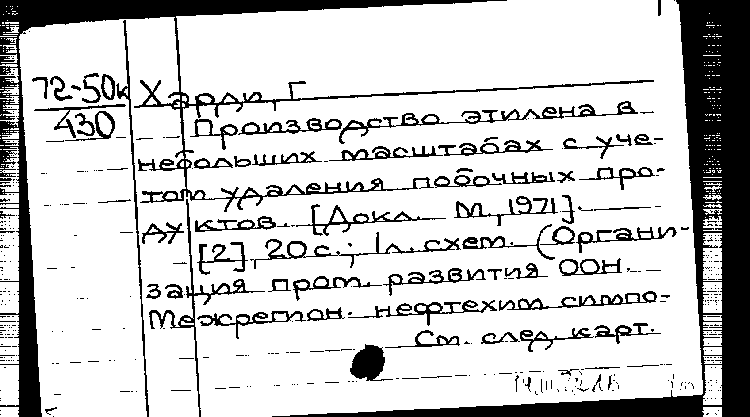 72-50к
430
Харди, Г
Производство этилена в
небольших масштабах с уче-
том удаления побочных про-
дуктов. [Докл. М., 1971].
[2], 20 с.; 1 л. схем. (Органи-
зация пром. развития ООН.
Межрегион. нефтехим симпо-
См. след. карт.